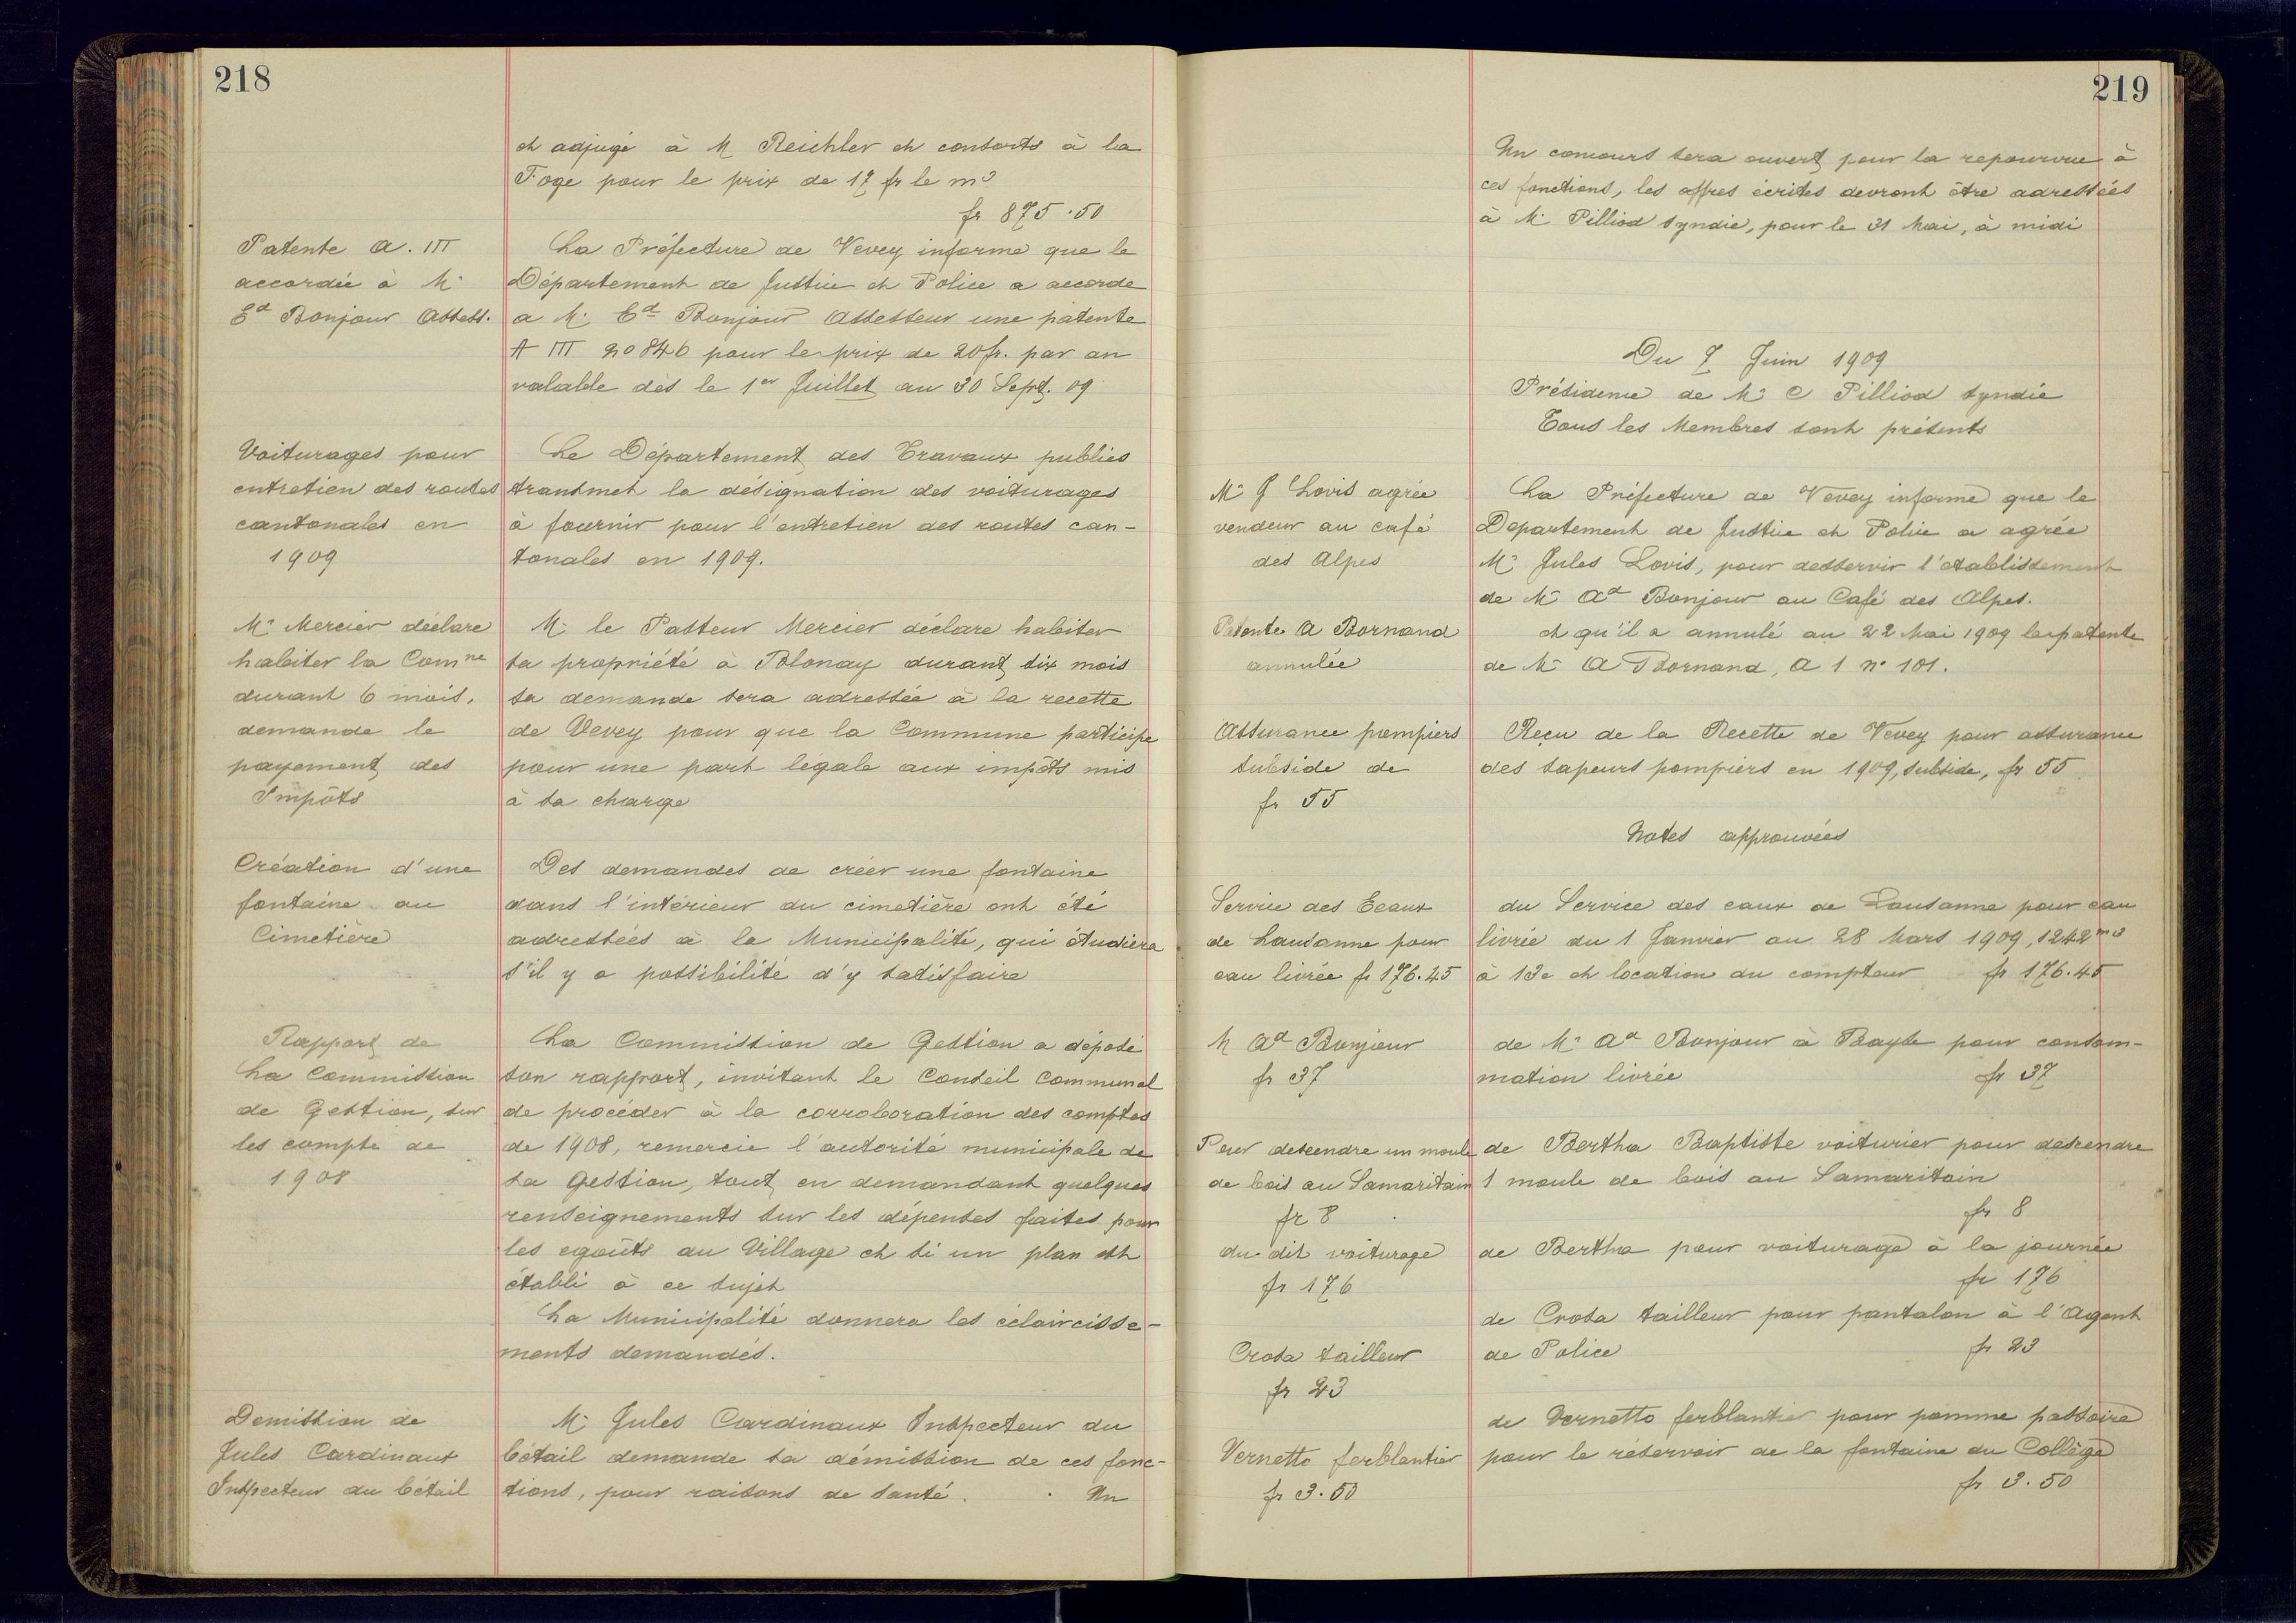 218
et adjugé à M Reichler et consorts à la
Foge pour le prix de 17 fr le m3
fr 875.50
Patente A. III
accordée à Mr
Ed Bonjour Assess.
La Préfecture de Vevey informe que le
Département de Justice et Police a accorde
a Mr Ed Bonjour Assesseur une patente
A III no 846 pour le prix de 20 fr. par an
valable dès le 1er Juillet au 30 Sept. 09
Voiturages pour
entretien des routes
cantonales en
1909
Le Département des Travaux publics
transmet la désignation des voiturages
à fournir pour l'entretien des routes can-
tonales en 1909.
Mr Mercier déclare
habiter la Comne
durant 6 mois,
demande le
payement des
Impôts
Mr le Pasteur Mercier déclare habiter
sa propriété à Blonay durant six mois
sa demande sera adressée à la recette
de Vevey pour que la Commune participe
pour une part légale aux impôts mis
à sa charge
Création d'une
fontaine au
Cimetière
Des demandes de créer une fontaine
dans l'intérieur du cimetière ont été
adressées à la Municipalité, qui étudiera
s'il y a possibilité d'y satisfaire
Rapport de
La Commission
de Gestion, sur
les compte de
1908
La Commission de Gestion a déposé
son rapport, invitant le Conseil Communal
de procéder à la corroboration des comptes
de 1908, remercie l'autorité municipale de
sa Gestion, tout en demandant quelques
renseignements sur les dépenses faites pour
les egoûts au Village et si un plan est
établi à ce sujet
La Municipalité donnera les éclaircisse-
ments demandés.
Demission de
Jules Cardinaux
Inspecteur du bétail
Mr Jules Cardinaux Inspecteur du
bétail demande sa démission de ces fonc-
tions, pour raisons de santé. Un
219
Un concours sera ouvert pour la repourvue à
ces fonctions, les offres écrites devront être adressées
à Mr Pilliod syndic, pour le 31 Mai, à midi
Du 7 Juin 1909
Présidence de Mr C Pilliod syndic
Tous les Membres sont présents
Mr J Lovis agrée
vendeur au café
des Alpes
La Préfecture de Vevey informe que le
Departement de Justice et Police a agrée
Mr Jules Lovis, pour desservir l'etablissement
de Mr Ad Bonjour au Café des Alpes.
Patente A Bornand
annulée
et qu'il a annulé au 22 Mai 1909 la patente
de Mr A Bornand, A 1 no 101.
Assurance pompiers
subside de
fr 55
Reçu de la Recette de Vevey pour assurance
des sapeurs pompiers en 1909, subside, fr 55
Notes approuvées
Service des Eaux
de Lausanne pour
eau livrée fr 176.45
du Service des eaux de Lausanne pour eau
livrée du 1 Janvier au 28 Mars 1909, 1242 m3
à 13c et location du compteur fr 176.45
M Ad Bonjour
fr 37
de Mr Ad Bonjour à Bayse pour consom-
mation livrée fr 37
Pour descendre un moule
de bois au Samaritain
fr 8
de Bertha Baptiste voiturier pour descendre
1 moule de bois au Samaritain
fr 8
du dit voiturage
fr 176
de Bertha pour voiturage à la journée
fr 176
Crosa tailleur
fr 23
de Crosa tailleur pour pantalon à l'Agent
de Police fr 23
Vernetto ferblantier
fr 3.50
de Vernetto ferblantier pour pomme passoire
pour le réservoir de la fontaine du Collège
fr 3.50